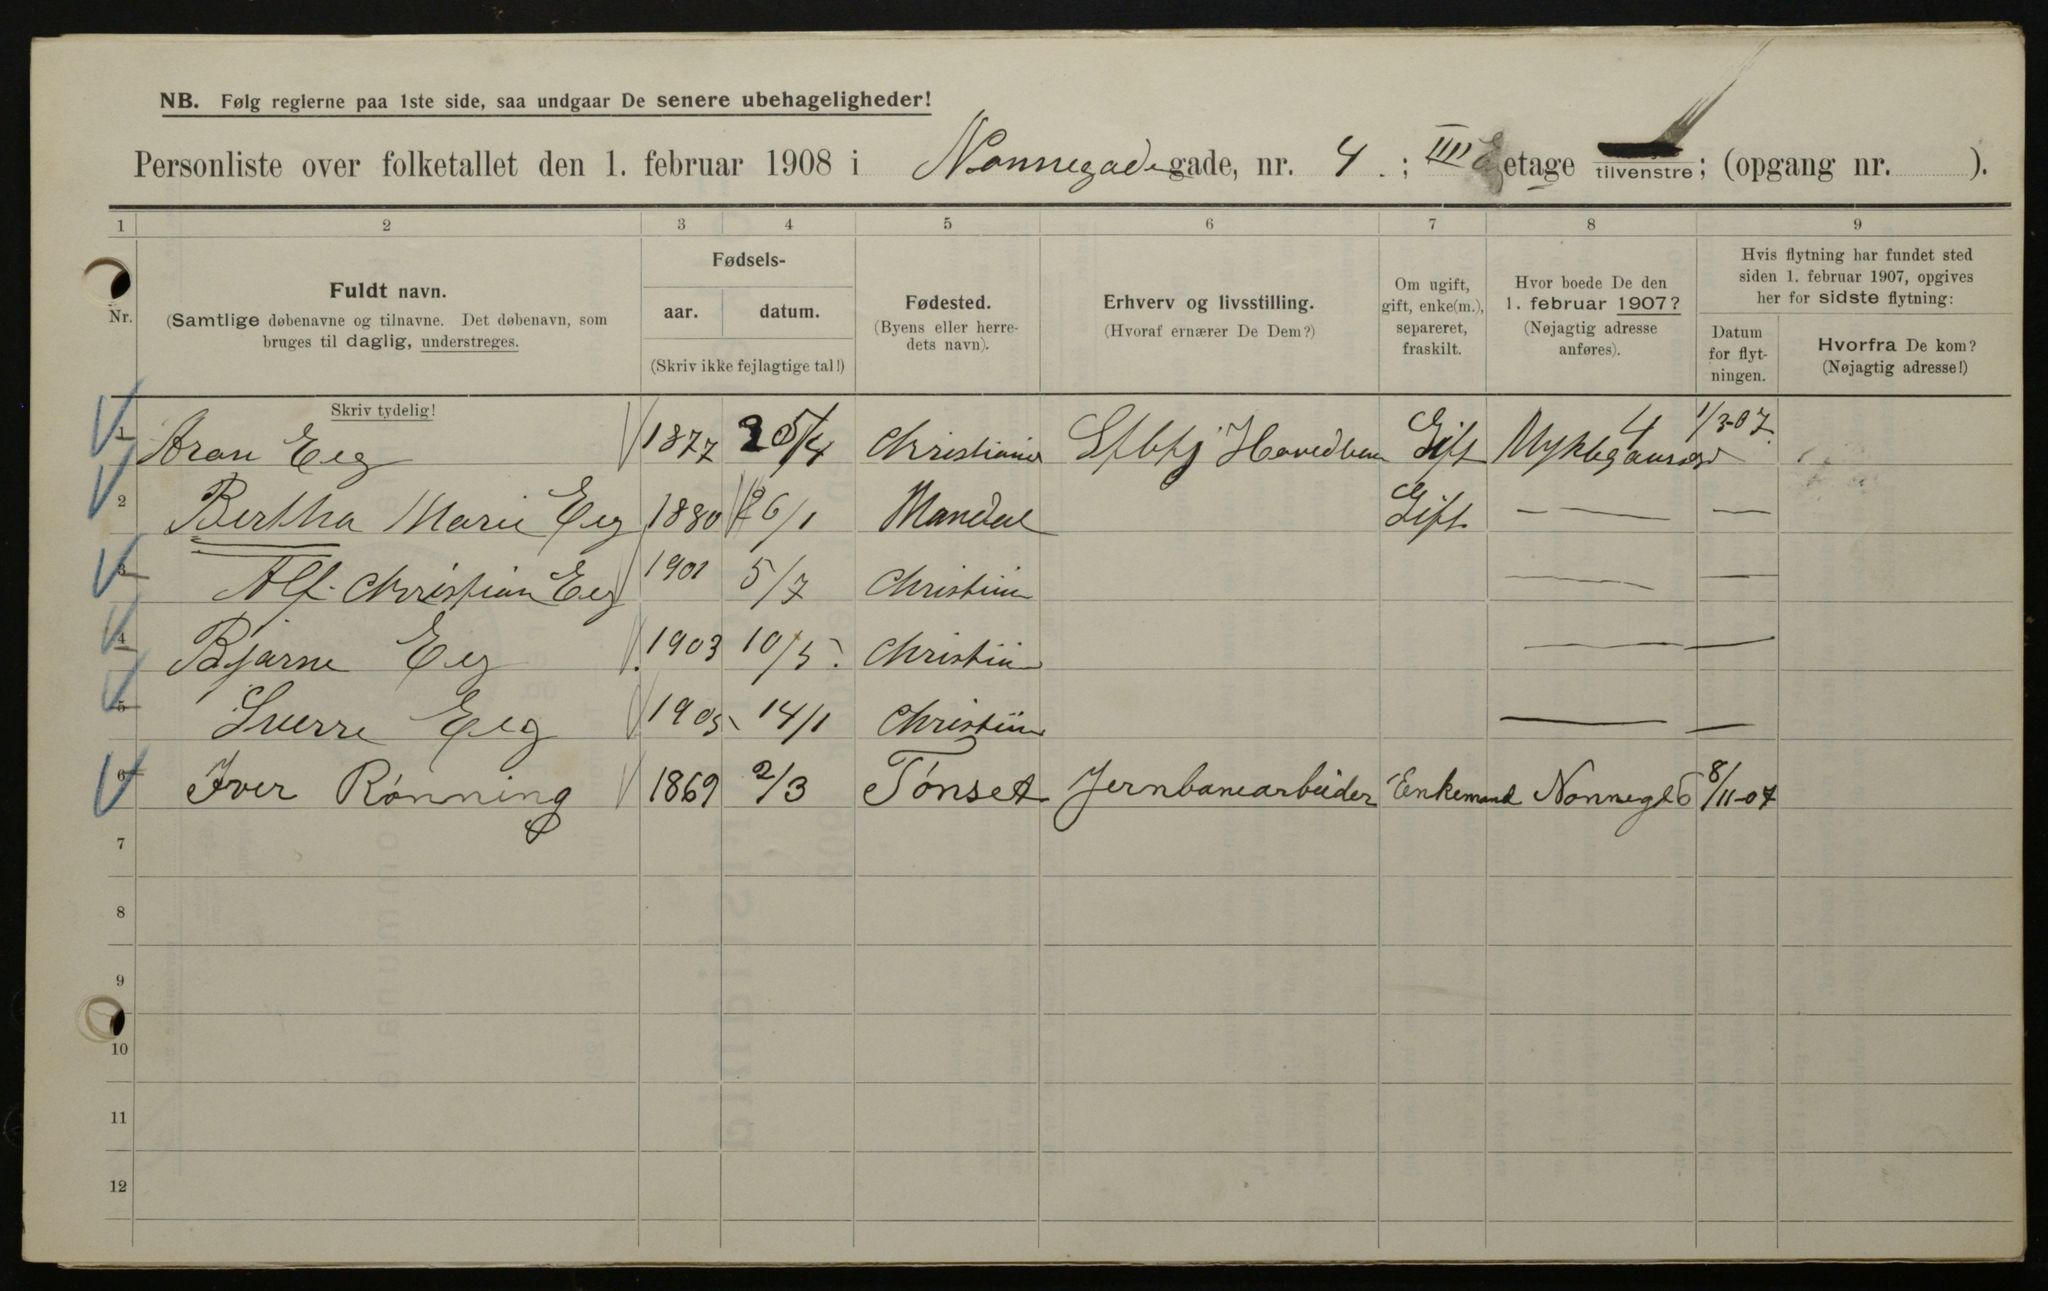 NB. Følg reglerne paa 1ste side, saa undgaar De senere ubehageligheder!
Personliste over folketallet den 1. februar 1908 i Nonnegadegade, nr. 4. ; IIII etage tilvenstre; (opgang nr. ).
1 2 3 4 5 6 7 8 9
Nr.
Fuldt navn.
(Samtlige døbenavne og tilnavne. Det døbenavn, som
bruges til daglig, understreges.
Skriv tydelig!
Fødsels-
aar. datum.
(Skriv ikke fejlagtige tal!)
Fødested.
(Byens eller herre-
dets navn).
Erhverv og livsstilling.
(Hvoraf ernærer De Dem?)
Om ugift,
gift, enke(m.),
separeret,
fraskilt.
Hvor boede De den
1. februar 1907?
(Nøjagtig adresse
anføres).
Hvis flytning har fundet sted
siden 1. februar 1907, opgives
her for sidste flytning:
Datum
for flyt-
ningen.
Hvorfra De kom?
(Nøjagtig adresse!)
1 Aron Eeg 1877 25/4 Christiania Gift 4 1/3-07.
2 Bertha Marie Eeg 1880 26/1 Mandal Gift — — —
3 Alf. Christian Eeg 1901 5/7 Christian — —
4 Bjarne Eeg 1903 10/5. Christian — —
5 Sverre Eeg 1905 14/1 Christian — —
6 Iver Rønning 1869 2/3 Tønset Jernbanearbeider Enkemand Nonnegd 6 8/11-07
7
8
9
10
11
12